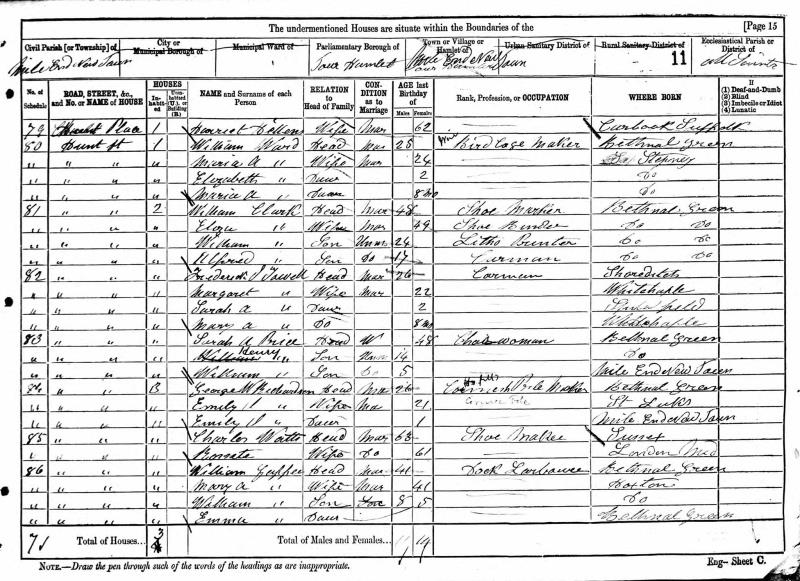 The undermentioned Houses are situate within the Boundaries of the [Page 15
Civil Parish [or Township] of City or Municipal Borough of Municipal Ward of Parliamentary Borough of Town or Village or Hamlet of Urban Sanitary District of Rural Sanitary District of Ecclesiastical Parish or District of
Mile End New Town Tower Hamlets Mile End New Town 11 All Saints
No. of Schedule ROAD, STREET, &c., and No. or NAME of HOUSE HOUSES Inhabited Uninhabited (U.), or Building (B.) NAME and Surname of each Person RELATION to Head of Family CONDITION as to Marriage AGE last Birthday of Males Females Rank, Profession, or OCCUPATION WHERE BORN If (1) Deaf-and-Dumb (2) Blind (3) Imbecile or Idiot (4) Lunatic
79 Place 1 Harriet Wife Mar 62 Suffolk
80 Hunt St 1 William Ward Head Mar 25 Bird Cage Maker Bethnal Green
" " " " Maria A " Wife Mar 24 Stepney
" " " " Elizabeth " Daur 2 Do
" " " " Maria A " Daur 8 mo Do
81 " " 2 William Clark Head Mar 48 Shoe Maker Bethnal Green
" " " " Eliza " Wife Mar 49 Shoe Binder Do Do
" " " " William " Son Unm 24 Litho Printer Do Do
" " " " Alfred " Son Do 17 Carman Do Do
82 " " " Frederick J Towell Head Mar 26 Carman Shoreditch
" " " " Margaret " Wife Mar 22 Whitechaple
" " " " Sarah A " Daur 2
" " " " Mary A " Do 8 mo Whitechaple
83 " " " Sarah A Price Head W 48 Char woman Bethnal Green
" " " " Henry " Son 14 Do
" " " " William " Son Do 5 Mile End New Town
" " " George W Richardson Head Ma 26 Maker Bethnal Green
" " " " Emily " Wife Ma 21 St Luks
" " " " Emily " Daur Mile End New Town
85 " " " Charles Watts Head Mar 63 Shoe Maker Sussex
" " " " " Wife Do 61 London
86 " " " William Head Mar 41 Dock Bethnal Green
" " " " Mary A " Wife Mar 41 Hoxton
" " " " William " Son 8 Do
" " " " Emma " Daur 5 Bethnal Green
71 Total of Houses... 3 Total of Males and Females... 11 14
NOTE.—Draw the pen through such of the words of the headings as are inappropriate. Eng—Sheet C.